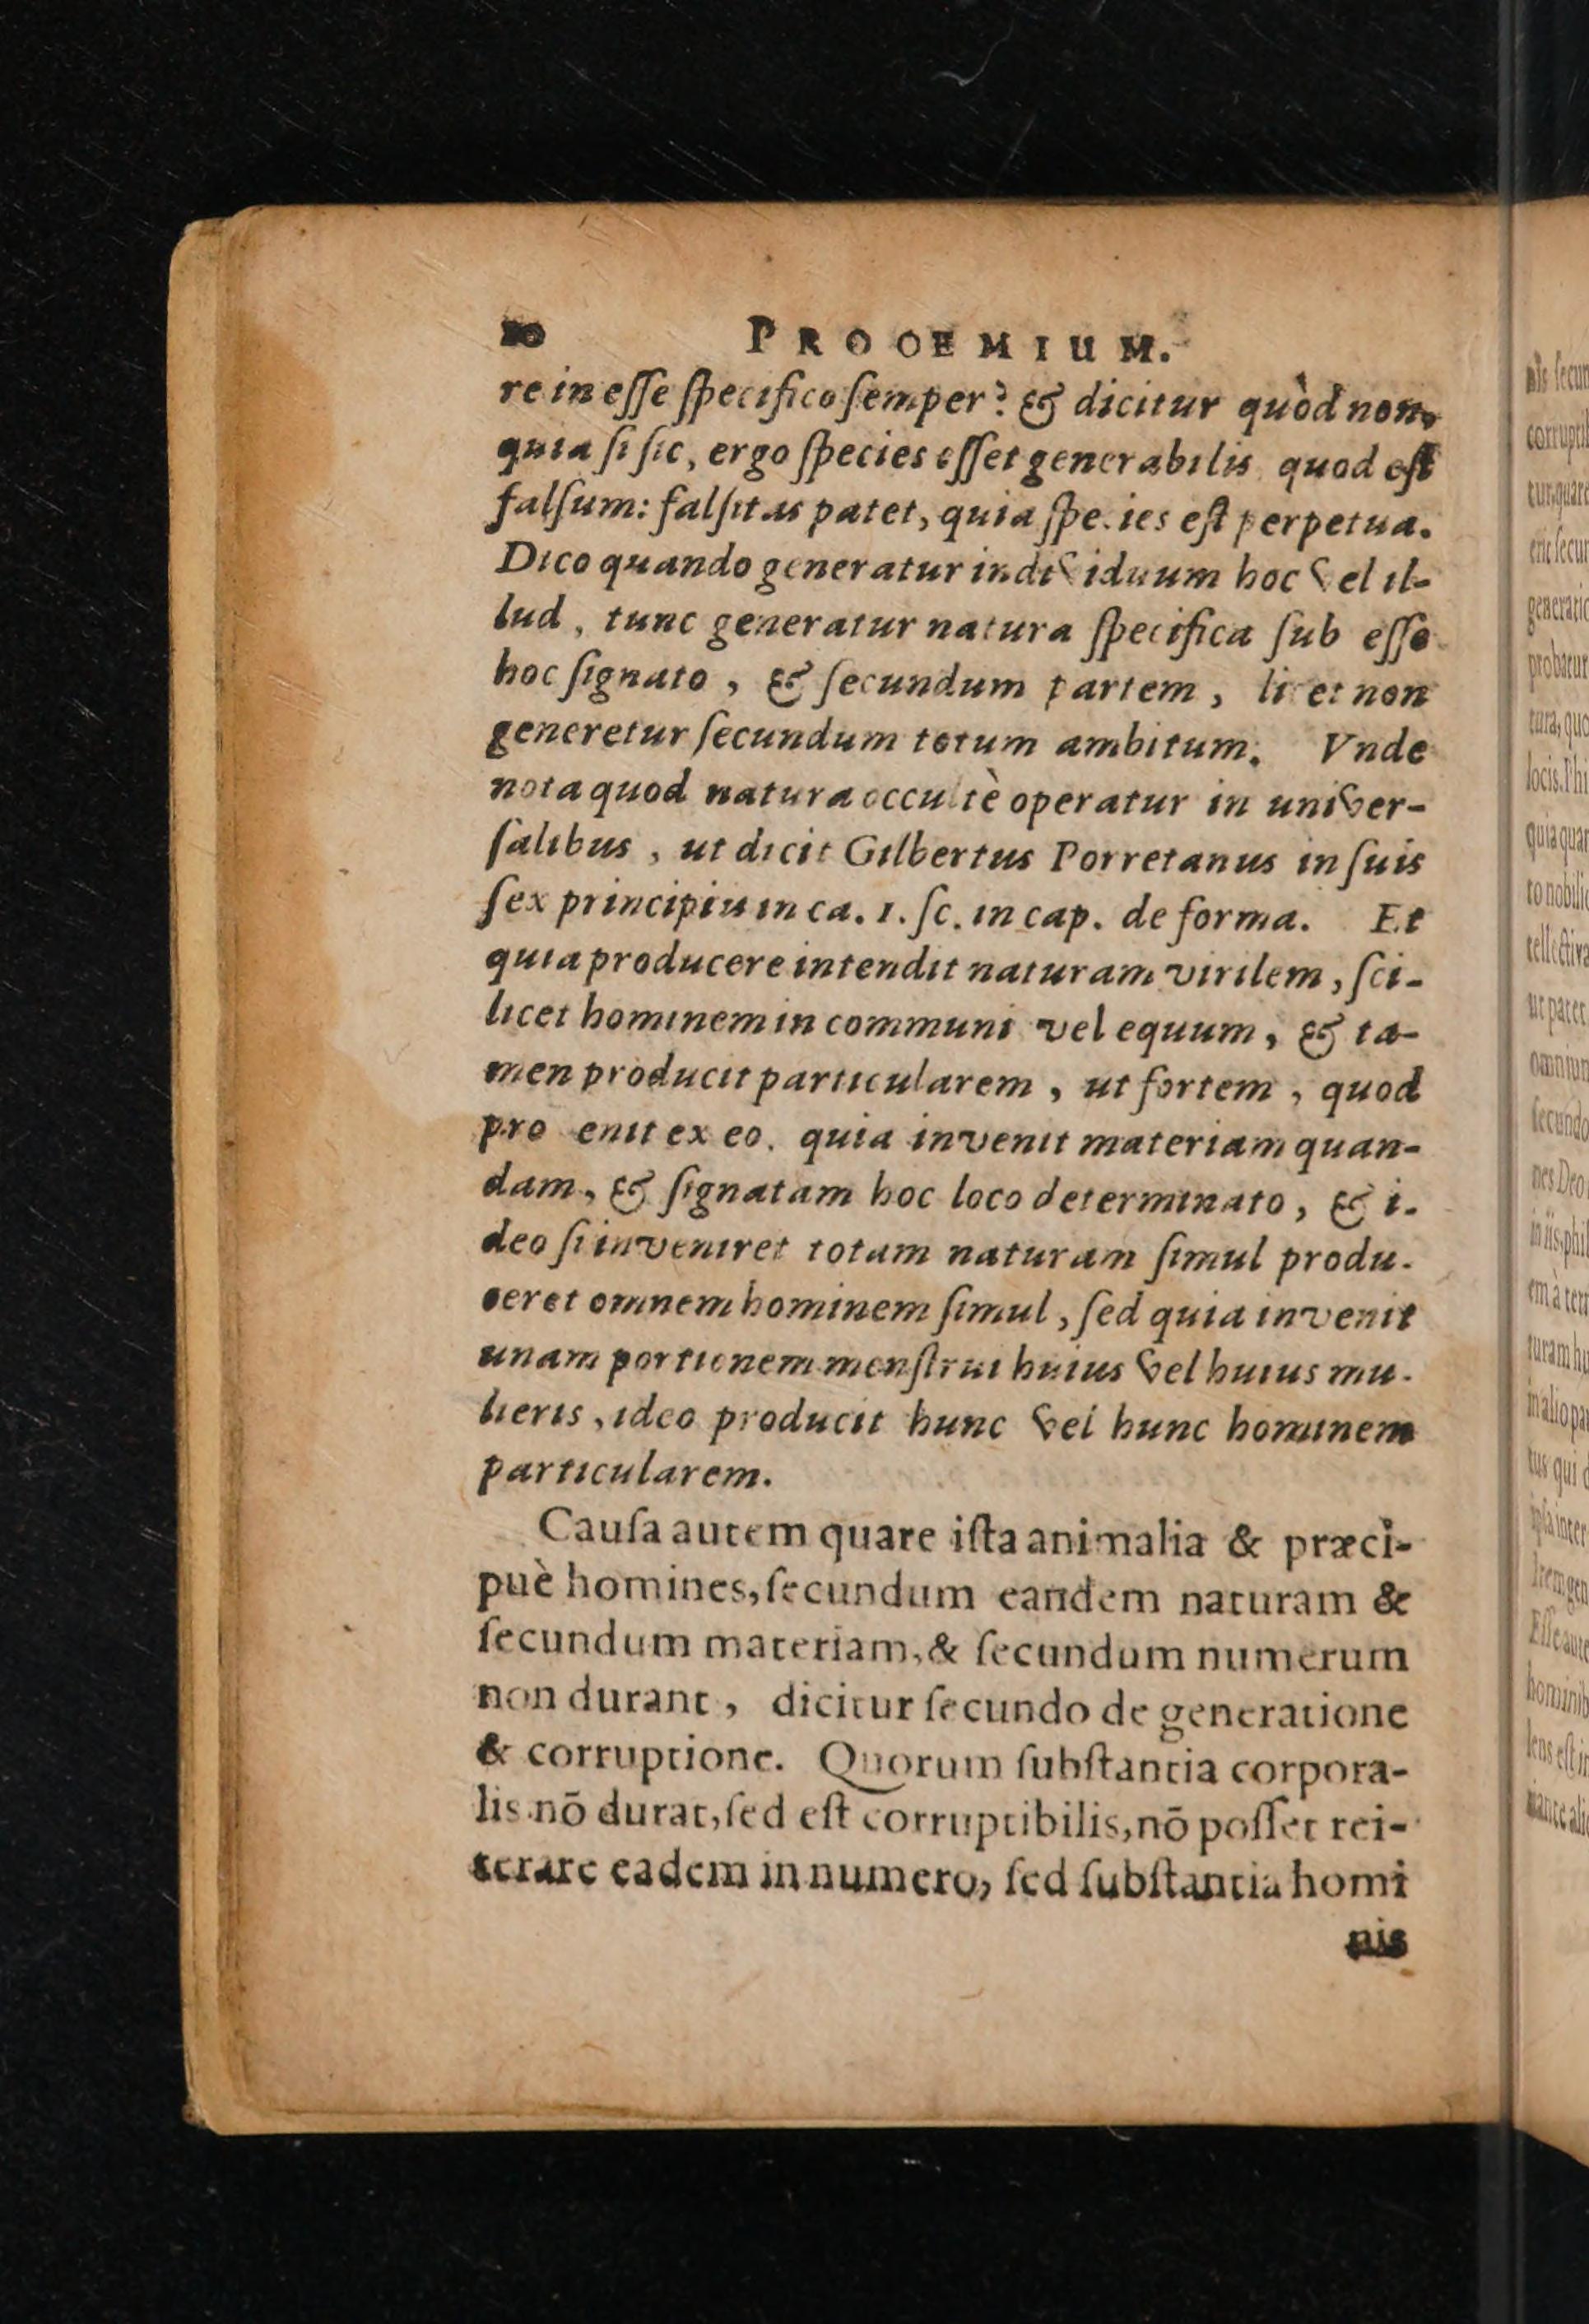 20 PROOEMIUM.
re in eſſe ſpecifico ſemper? & dicitur quòd non,
quia ſi ſic, ergo ſpecies eſſet generabilis quod eſt
falſum: falſitas patet, quia ſpecies eſt perpetua.
Dico quando generatur individuum hoc vel il-
lud, tunc generatur natura ſpecifica ſub eſſe
hoc ſignato, & ſecundum partem, licet non
generetur ſecundum totum ambitum. Vnde
nota quod natura occultè operatur in univer-
ſalibus, ut dicit Gilbertus Porretanus in ſuis
ſex principiis in ca. 1. ſc. in cap. de forma. Et
quia producere intendit naturam virilem, ſci-
licet hominem in communi vel equum, & ta-
men producit particularem, ut fortem, quod
pro enit ex eo. quia invenit materiam quan-
dam, & ſignatam hoc loco determinato, & i-
deo ſi inveniret totam naturam ſimul produ-
ceret omnem hominem ſimul, ſed quia invenit
unam portionem menſtrui huius vel huius mu-
lieris, ideo producit hunc vel hunc hominem
particularem.
Cauſa autem quare iſta animalia & præci-
puè homines, ſecundum eandem naturam &
ſecundum materiam, & ſecundum numerum
non durant, dicitur ſecundo de generatione
& corruptione. Quorum ſubſtantia corpora-
lis nō durat, ſed eſt corruptibilis, nō poſſet rei-
terare eadem in numero, ſed ſubſtantia homi
nis